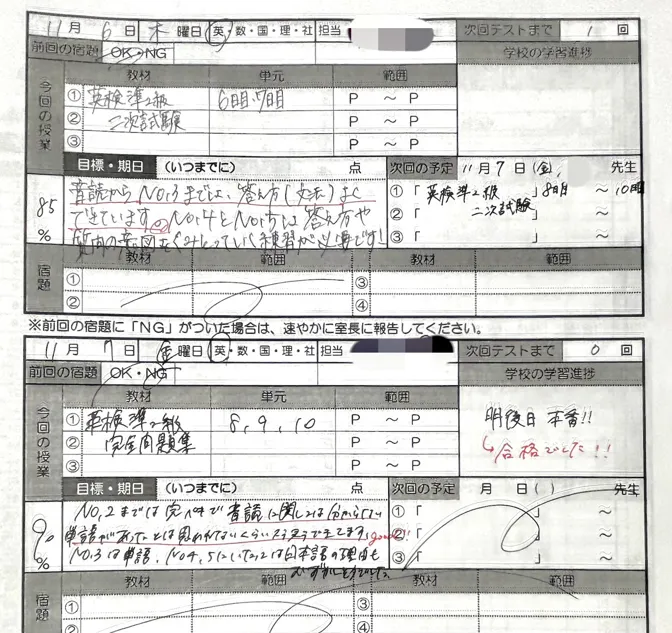 11月6日 木曜日 英・数・国・理・社 担当 次回テストまで 1回
前回の宿題 OK・NG 学校の学習進捗
今回の授業 教材 単元 範囲
① 英検準2級 6日目、7日目 P ～ P
② 二次試験 P ～ P
③ P ～ P
目標・期日 (いつまでに) 点 次回の予定 11月7日(金) 先生
85% 音読からNo,3までは、答え方(文法)よく
できています。No,4とNo,5は答え方や
質問の意図をくみとっていく練習が必要です!
①「英検準2級 」8日目 ～ 10日目
②「 二次試験 」 ～
③「 」 ～
宿題 教材 範囲 教材 範囲
① ③
② ④
※前回の宿題に「NG」がついた場合は、速やかに室長に報告してください。
11月7日 金曜日 英・数・国・理・社 担当 次回テストまで 0回
前回の宿題 OK・NG 学校の学習進捗
今回の授業 教材 単元 範囲
① 英検準2級 8, 9, 10 P ～ P
② 完全問題集 P ～ P
③ P ～ P
明後日 本番!!
↳合格でした!!
目標・期日 (いつまでに) 点 次回の予定 月 日( ) 先生
90% No,2までは完ペキで音読に関しては分からない
単語があったとは思われないくらいスラスラできてます。good!!
No,3は単語、No4,5については日本語の理由も
①「 」 ～
②「 」 ～
③「 」 ～
宿題 教材 範囲 教材 範囲
① ③
② ④